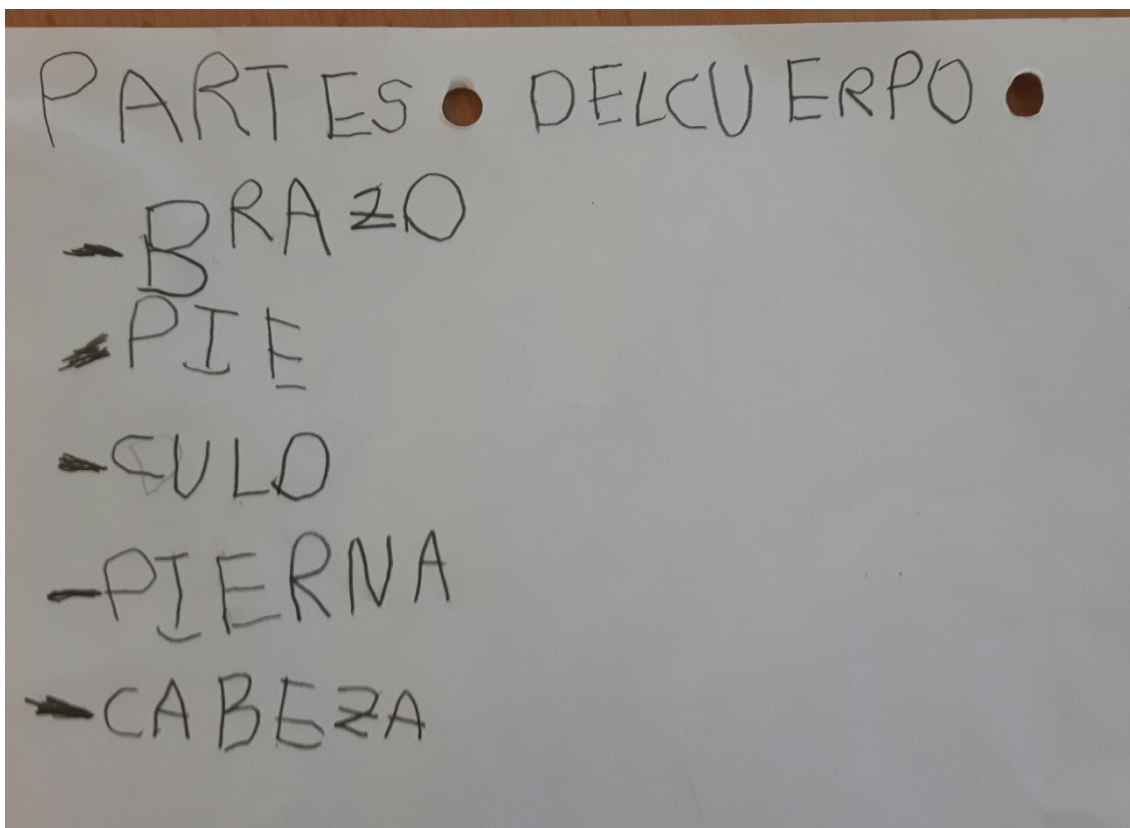 PARTES DELCUERPO
- BRAZO
- PIE
- CULO
- PIERNA
- CABEZA